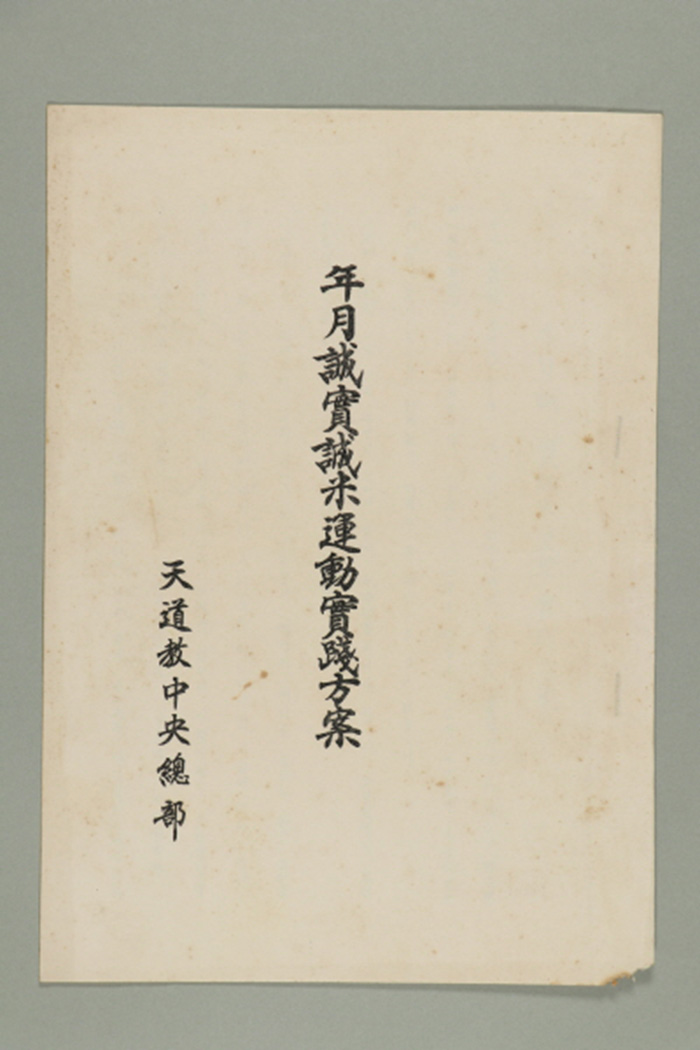 年月誠實誠米運動實踐方案
天道教中央總部